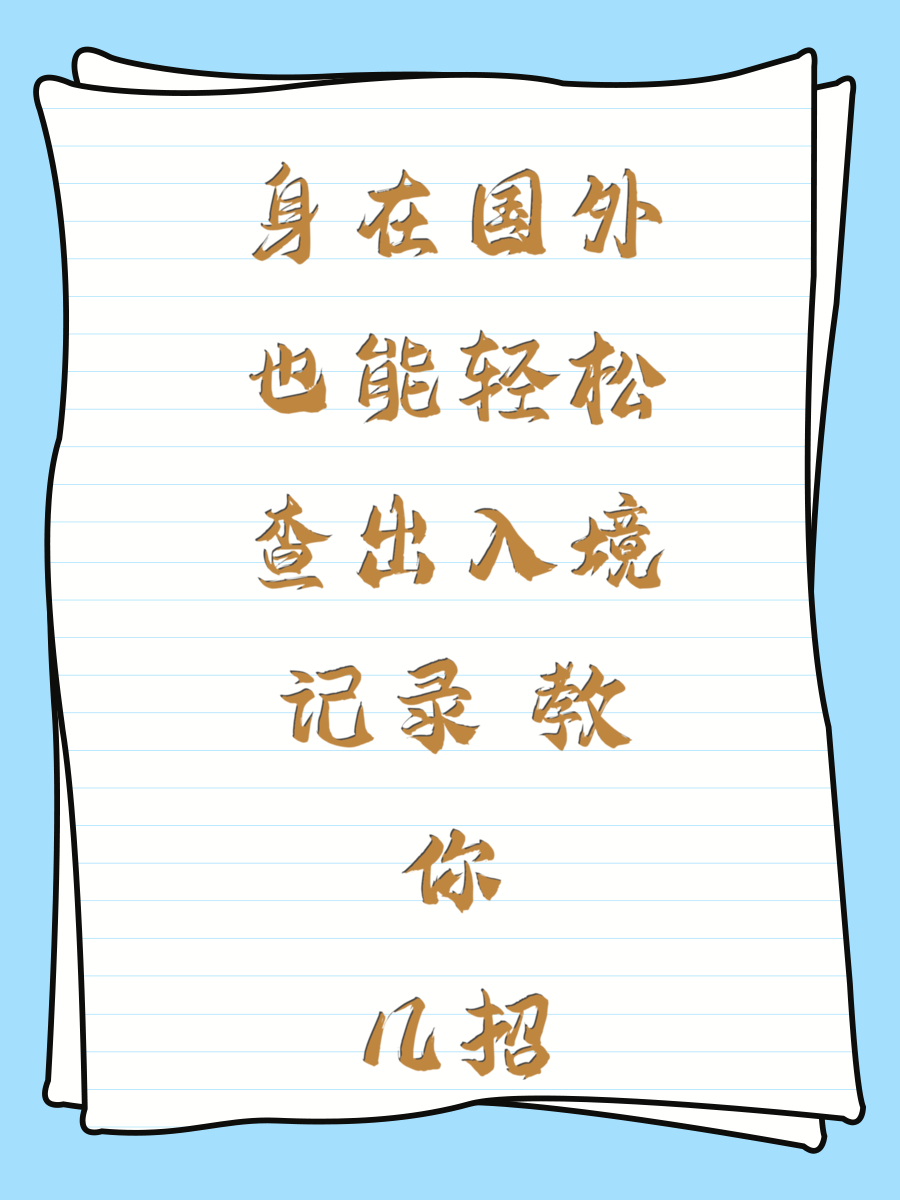 身在国外
也能轻松
查出入境
记录 教
你
几招